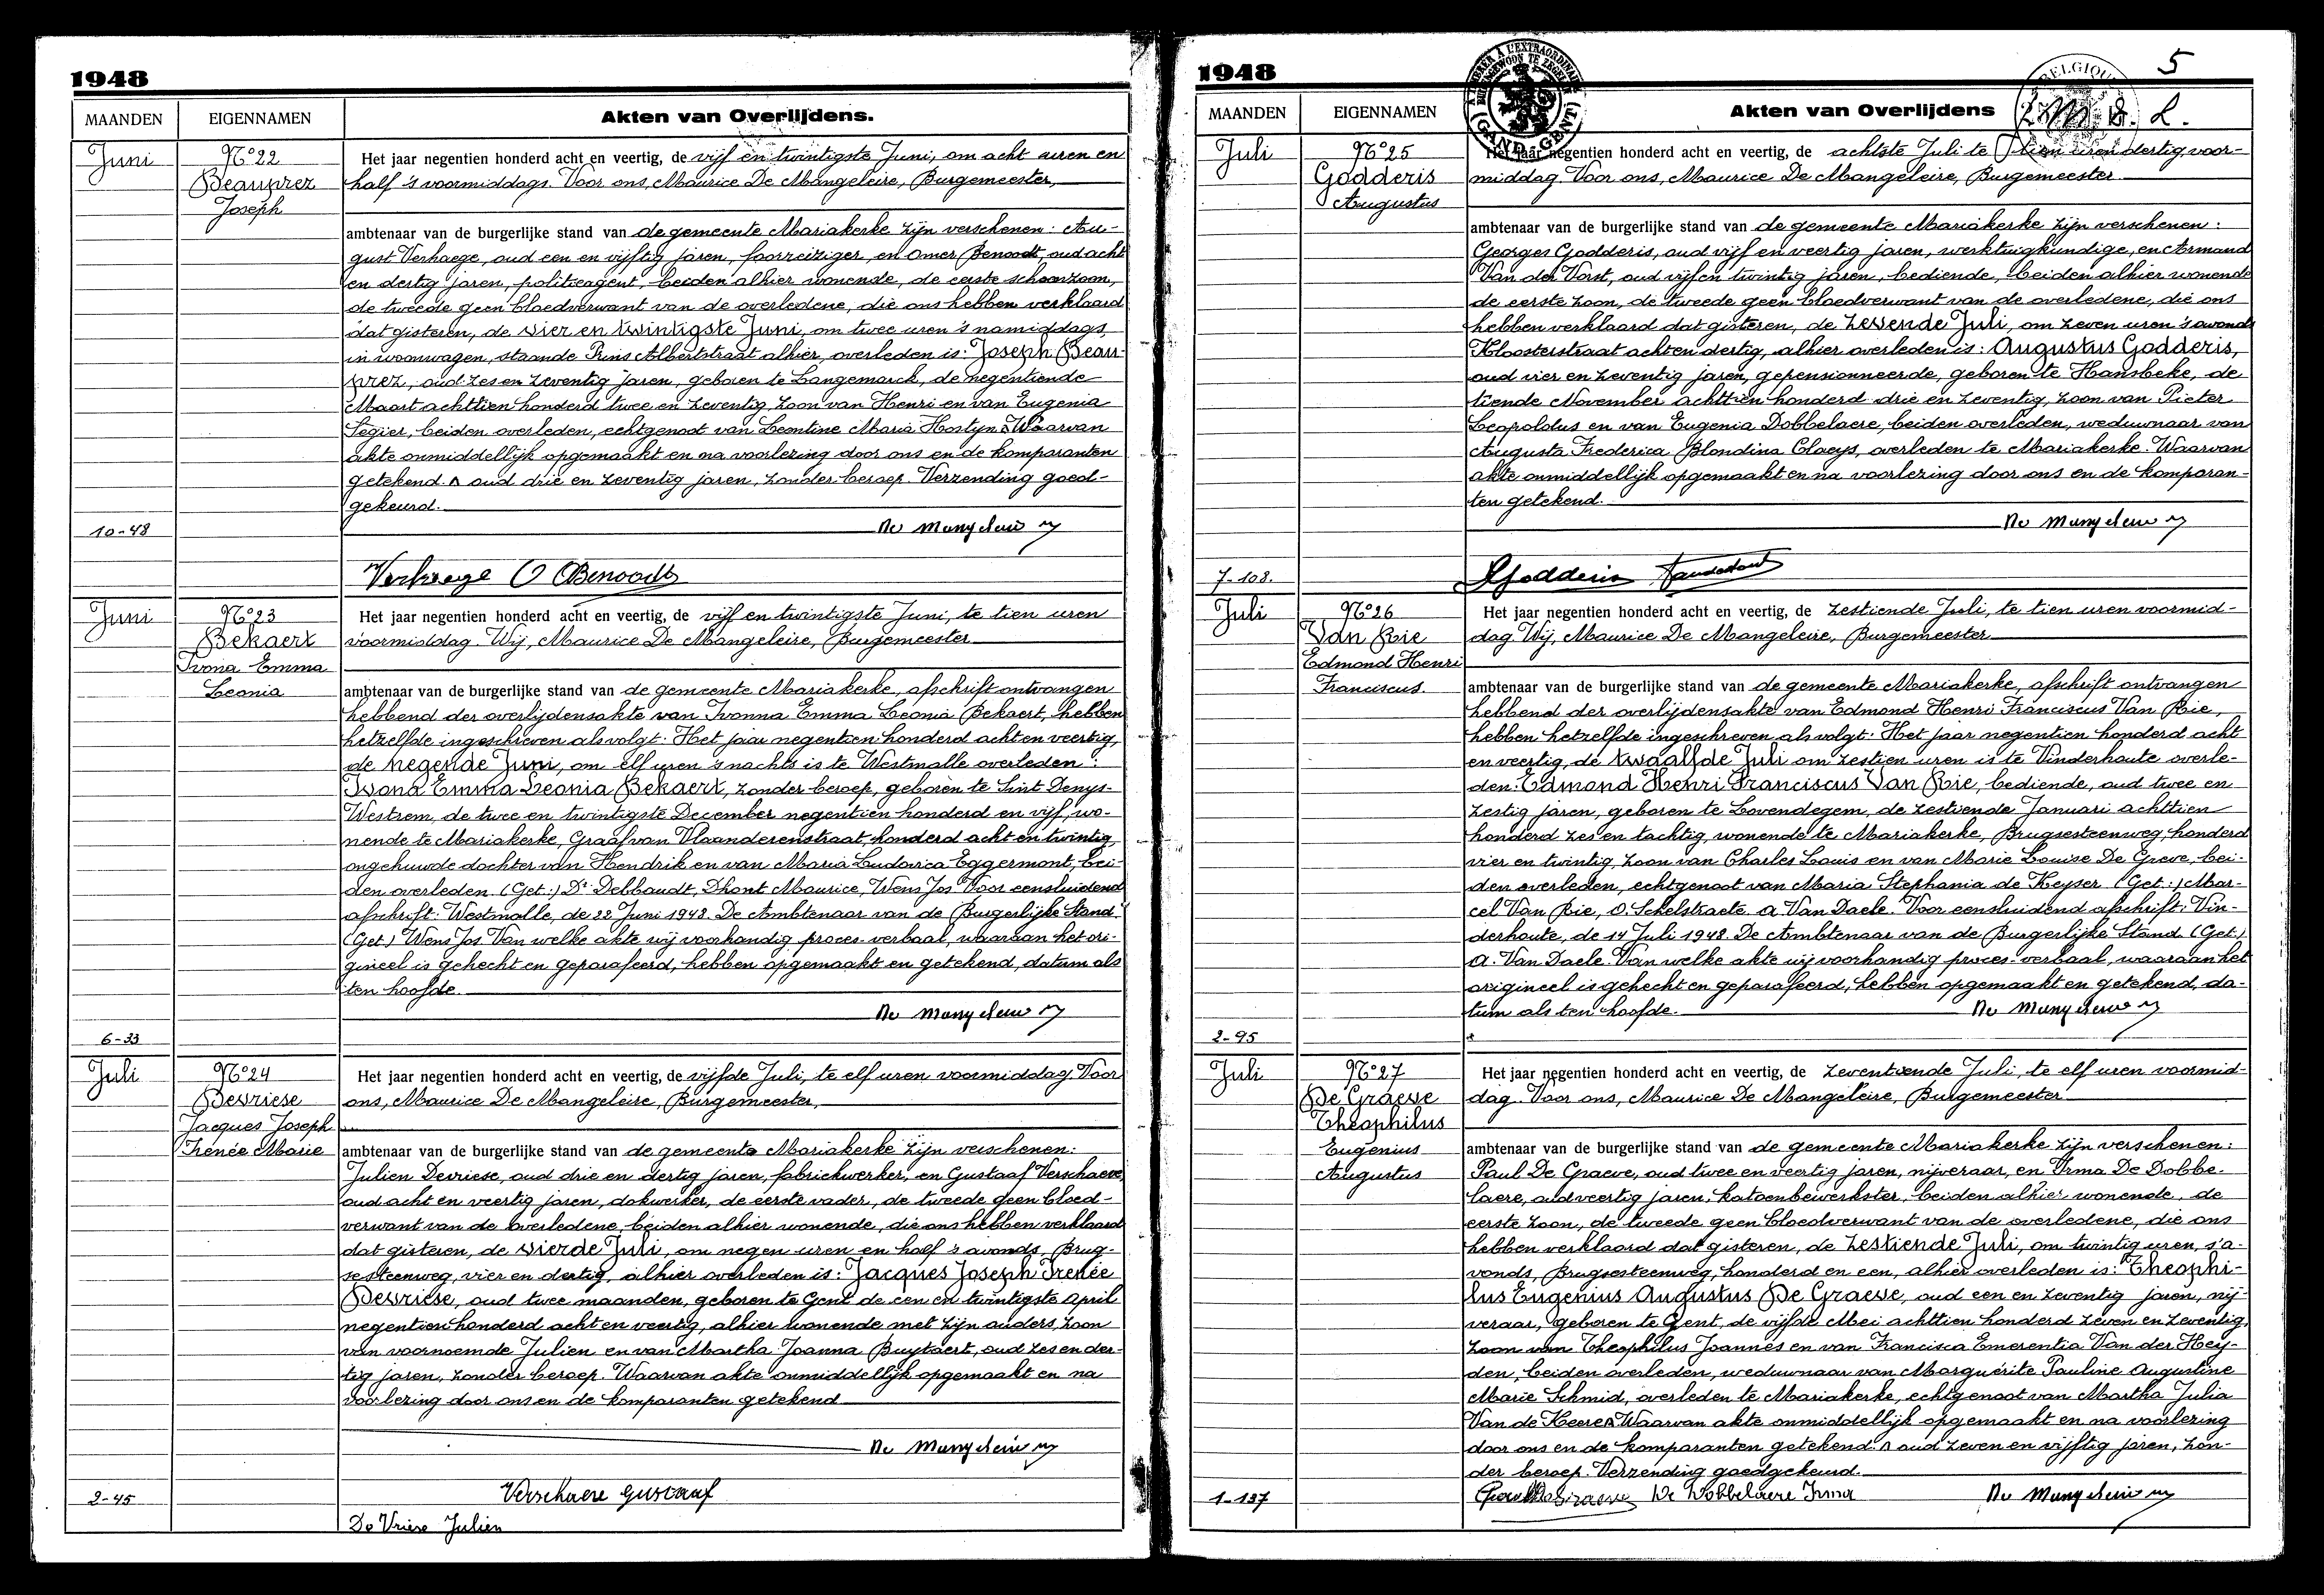 1948
MAANDEN
EIGENNAMEN
Akten van Overlijdens.
Juni
N° 22
Beauprez
Joseph
Het jaar negentien honderd acht en veertig, de vijf en twintigste Juni, om acht uren en
half 's voormiddags. Voor ons, Maurice De Mangeleire, Burgemeester,
ambtenaar van de burgerlijke stand van de gemeente Mariakerke zijn verschenen: Au-
gust Verhaege, oud een en vijftig jaren, foorreiziger, en Omer Benoodt, oud acht
en dertig jaren, politieagent, beiden alhier wonende, de eerste schoonzoon,
de tweede geen bloedverwant van de overledene, die ons hebben verklaard
dat gisteren, de vier en twintigste Juni, om twee uren 's namiddags,
in woonwagen, staande Prins Albertstraat alhier, overleden is: Joseph Beau-
prez, oud zes en zeventig jaren, geboren te Langemarck, de negentiende
Maart achttien honderd twee en zeventig, zoon van Henri en van Eugenia
Segier, beiden overleden, echtgenoot van Leontine Maria Hostyn. Waarvan
akte onmiddellijk opgemaakt en na voorlezing door ons en de komparanten
getekend. ʌ oud drie en zeventig jaren, zonder beroep. Verzending goed-
gekeurd.
10-48
De Mangeleire
Verhaege O Benoodt
Juni
N° 23
Bekaert
Ivona Emma
Leonia
Het jaar negentien honderd acht en veertig, de vijf en twintigste Juni, te tien uren
voormiddag. Wij, Maurice De Mangeleire, Burgemeester
ambtenaar van de burgerlijke stand van de gemeente Mariakerke, afschrift ontvangen
hebbend der overlijdensakte van Ivonna Emma Leonia Bekaert, hebben
hetzelfde ingeschreven als volgt: Het jaar negentien honderd acht en veertig,
de negende Juni, om elf uren 's nachts is te Westmalle overleden:
Ivona Emma Leonia Bekaert, zonder beroep, geboren te Sint Denys-
Westrem, de twee en twintigste December negentien honderd en vijf, wo-
nende te Mariakerke, Graaf van Vlaanderenstraat, honderd acht en twintig,
ongehuwde dochter van Hendrik en van Maria Ludovica Eggermont, bei-
den overleden. (Get.:) Dr Debbaudt, Dhont Maurice, Wens Jos. Voor eensluidend
afschrift: Westmalle, de 22 Juni 1948. De Ambtenaar van de Burgerlijke Stand
(Get.) Wens Jos. Van welke akte wij voorhandig proces-verbaal, waaraan het ori-
gineel is gehecht en geparafeerd, hebben opgemaakt en getekend, datum als
ten hoofde.
De Mangeleire
6-33
Juli
N° 24
Devriese
Jacques Joseph
Irenée Marie
Het jaar negentien honderd acht en veertig, de vijfde Juli, te elf uren voormiddag. Voor
ons, Maurice De Mangeleire, Burgemeester,
ambtenaar van de burgerlijke stand van de gemeente Mariakerke zijn verschenen:
Julien Devriese, oud drie en dertig jaren, fabriekwerker, en Gustaaf Verschaeve,
oud acht en veertig jaren, dokwerker, de eerste vader, de tweede geen bloed-
verwant van de overledene, beiden alhier wonende, die ons hebben verklaard
dat gisteren, de vierde Juli, om negen uren en half 's avonds, Brug-
sesteenweg, vier en dertig, alhier overleden is: Jacques Joseph Irenée
Devriese, oud twee maanden, geboren te Gent de een en twintigste April
negentien honderd acht en veertig, alhier wonende met zijn ouders, zoon
van voornoemde Julien en van Martha Joanna Buytaert, oud zes en der-
tig jaren, zonder beroep. Waarvan akte onmiddellijk opgemaakt en na
voorlezing door ons en de komparanten getekend
De Mangeleire
2-45
Verschaeve Gustaaf
De Vriese Julien
1948
5
MAANDEN
EIGENNAMEN
Akten van Overlijdens
Juli
N° 25
Godderis
Augustus
Het jaar negentien honderd acht en veertig, de achtste Juli te tien uren dertig, voor-
middag. Voor ons, Maurice De Mangeleire, Burgemeester
ambtenaar van de burgerlijke stand van de gemeente Mariakerke zijn verschenen:
Georges Godderis, oud vijf en veertig jaren, werktuigkundige, en Armand
Van der Vorst, oud vijf en twintig jaren, bediende, beiden alhier wonende
de eerste zoon, de tweede geen bloedverwant van de overledene, die ons
hebben verklaard dat gisteren, de zevende Juli, om zeven uren 's avonds
Kloosterstraat acht en dertig, alhier overleden is: Augustus Godderis,
oud vier en zeventig jaren, gepensionneerde, geboren te Hansbeke, de
tiende November achttien honderd drie en zeventig, zoon van Pieter
Leopoldus en van Eugenia Dobbelaere, beiden overleden, weduwnaar van
Augusta Frederica Blondina Claeys, overleden te Mariakerke. Waarvan
akte onmiddellijk opgemaakt en na voorlezing door ons en de komparan-
ten getekend.
De Mangeleire
7-108.
Godderis
Juli
N° 26
Van Rie
Edmond Henri
Franciscus.
Het jaar negentien honderd acht en veertig, de zestiende Juli, te tien uren voormid-
dag. Wij, Maurice De Mangeleire, Burgemeester
ambtenaar van de burgerlijke stand van de gemeente Mariakerke, afschrift ontvangen
hebbend der overlijdensakte van Edmond Henri Franciscus Van Rie,
hebben hetzelfde ingeschreven als volgt: Het jaar negentien honderd acht
en veertig, de twaalfde Juli om zestien uren is te Vinderhoute overle-
den: Edmond Henri Franciscus Van Rie, bediende, oud twee en
zestig jaren, geboren te Lovendegem, de zestiende Januari achttien
honderd zes en tachtig, wonende te Mariakerke, Brugsesteenweg, honderd
vier en twintig, zoon van Charles Louis en van Marie Louise De Greve, bei-
den overleden, echtgenoot van Maria Stephania de Keyser. (Get.:) Mar-
cel Van Rie, O. Schelstraete. A. Van Daele. Voor eensluidend afschrift: Vin-
derhoute, de 14 Juli 1948. De Ambtenaar van de Burgerlijke Stand. (Get.)
A. Van Daele. Van welke akte wij voorhandig proces-verbaal, waaraan het
origineel is gehecht en geparafeerd, hebben opgemaakt en getekend, da-
tum als ten hoofde.
De Mangeleire
2-95
Juli
N° 27
De Graeve
Theophilus
Eugenius
Augustus
Het jaar negentien honderd acht en veertig, de zeventiende Juli, te elf uren voormid-
dag. Voor ons, Maurice De Mangeleire, Burgemeester
ambtenaar van de burgerlijke stand van de gemeente Mariakerke zijn verschenen:
Paul De Graeve, oud twee en veertig jaren, nijveraar, en Irma De Dobbe-
laere, oud veertig jaren, katoenbewerkster, beiden alhier wonende, de
eerste zoon, de tweede geen bloedverwant van de overledene, die ons
hebben verklaard dat gisteren, de zestiende Juli, om twintig uren, s'a-
vonds, Brugsesteenweg, honderd en een, alhier overleden is: Theophi-
lus Eugenius Augustus De Graeve, oud een en zeventig jaren, nij-
veraar, geboren te Gent, de vijfde Mei achttien honderd zeven en zeventig,
zoon van Theophilus Joannes en van Francisca Emerentia Van der Hey-
den, beiden overleden, weduwnaar van Marguérite Pauline Augustine
Marie Schmid, overleden te Mariakerke, echtgenoot van Martha Julia
Van de Keere ʌ Waarvan akte onmiddellijk opgemaakt en na voorlezing
door ons en de komparanten getekend. ʌ oud zeven en vijftig jaren, zon-
der beroep. Verzending goedgekeurd.
1-137
De Graeve De Dobbelaere Irma
De Mangeleire